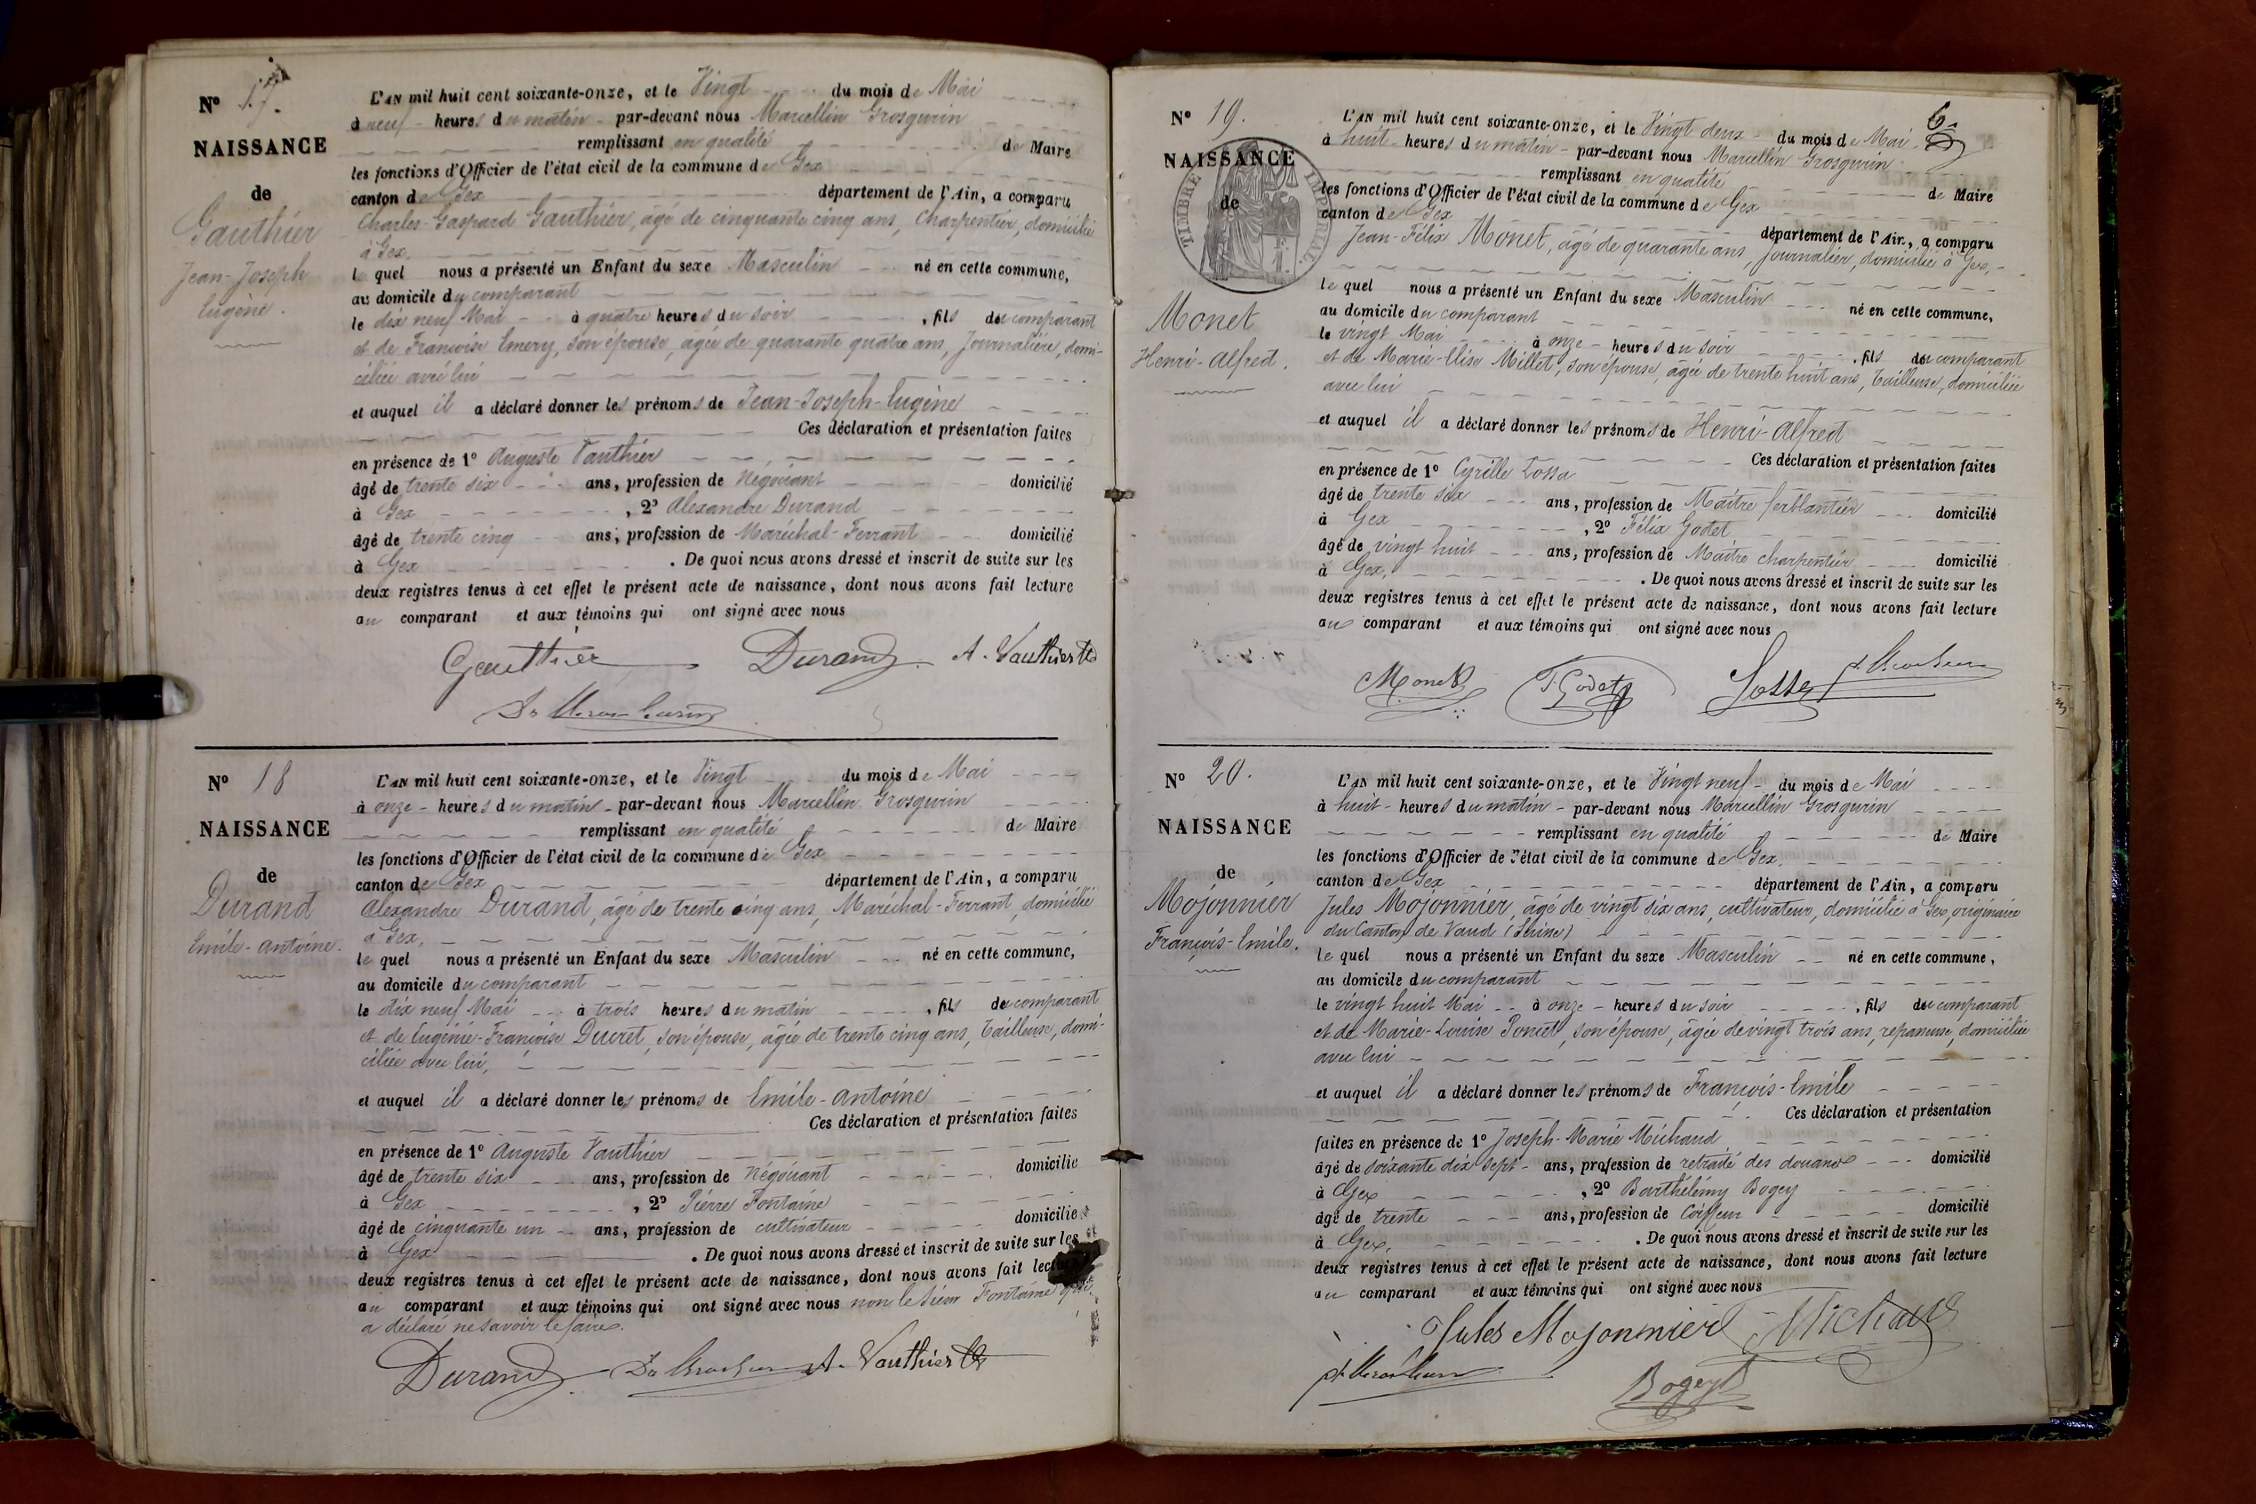 Nº 17.
NAISSANCE
de
Gauthier
Jean-Joseph
Eugène.
L'AN mil huit cent soixante-onze, et le Vingt du mois de Mai
à neuf heures du matin par-devant nous Marcellin Grosgurin
remplissant en qualité de Maire
les fonctions d'Officier de l'état civil de la commune de Gex
canton de Gex département de l'Ain, a comparu
Charles-Gaspard Gauthier, âgé de cinquante cinq ans, Charpentier, domicilié
à Gex.
le quel nous a présenté un Enfant du sexe Masculin né en cette commune,
au domicile du comparant
le dix neuf Mai à quatre heures du soir , fils du comparant
et de Françoise Emery, son épouse, âgée de quarante quatre ans, Journalière, domi-
ciliée avec lui
et auquel il a déclaré donner les prénoms de Jean-Joseph-Eugène
Ces déclaration et présentation faites
en présence de 1º Auguste Vauthier
âgé de trente six ans, profession de Négociant domicilié
à Gex , 2º Alexandre Durand
âgé de trente cinq ans, profession de Maréchal-Ferrant domicilié
à Gex . De quoi nous avons dressé et inscrit de suite sur les
deux registres tenus à cet effet le présent acte de naissance, dont nous avons fait lecture
au comparant et aux témoins qui ont signé avec nous
Gauthier Durand A. Vauthier
Nº 18
NAISSANCE
de
Durand
Emile-Antoine.
L'AN mil huit cent soixante-onze, et le Vingt du mois de Mai
à onze heures du matin par-devant nous Marcellin Grosgurin
remplissant en qualité de Maire
les fonctions d'Officier de l'état civil de la commune de Gex
canton de Gex département de l'Ain, a comparu
Alexandre Durand, âgé de trente cinq ans, Maréchal-Ferrant, domicilié
à Gex,
le quel nous a présenté un Enfant du sexe Masculin né en cette commune,
au domicile du comparant
le dix neuf Mai à trois heures du matin , fils du comparant
et de Eugénie-Françoise Ducret, son épouse, âgée de trente cinq ans, Tailleuse, domi-
ciliée avec lui,
et auquel il a déclaré donner les prénoms de Emile-Antoine
Ces déclaration et présentation faites
en présence de 1º Auguste Vauthier
âgé de trente six ans, profession de Négociant domicilié
à Gex , 2º Pierre Fontaine
âgé de cinquante un ans, profession de cultivateur domicilié
à Gex . De quoi nous avons dressé et inscrit de suite sur les
deux registres tenus à cet effet le présent acte de naissance, dont nous avons fait lecture
au comparant et aux témoins qui ont signé avec nous non le sieur Fontaine qui
a déclaré ne savoir le faire.
Durand A. Vauthier
6
Nº 19.
NAISSANCE
de
TIMBRE IMPÉRIAL
Monet
Henri-Alfred.
L'AN mil huit cent soixante-onze, et le Vingt deux du mois de Mai
à huit heures du matin par-devant nous Marcellin Grosgurin
remplissant en qualité de Maire
les fonctions d'Officier de l'état civil de la commune de Gex
canton de Gex département de l'Ain, a comparu
Jean-Félix Monet, âgé de quarante ans, Journalier, domicilié à Gex,
le quel nous a présenté un Enfant du sexe Masculin né en cette commune,
au domicile du comparant
le vingt Mai à onze heures du soir , fils du comparant
et de Marie-Elise Millet, son épouse, âgée de trente huit ans, Tailleuse, domiciliée
avec lui
et auquel il a déclaré donner les prénoms de Henri-Alfred
Ces déclaration et présentation faites
en présence de 1º Cyrille
âgé de trente six ans, profession de Maître ferblantier domicilié
à Gex , 2º Félix Godet
âgé de vingt huit ans, profession de Maître charpentier domicilié
à Gex, . De quoi nous avons dressé et inscrit de suite sur les
deux registres tenus à cet effet le présent acte de naissance, dont nous avons fait lecture
au comparant et aux témoins qui ont signé avec nous
Monet F. Godet
Nº 20.
NAISSANCE
de
Mojonnier
François-Emile.
L'AN mil huit cent soixante-onze, et le Vingt neuf du mois de Mai
à huit heures du matin par-devant nous Marcellin Grosgurin
remplissant en qualité de Maire
les fonctions d'Officier de l'état civil de la commune de Gex
canton de Gex département de l'Ain, a comparu
Jules Mojonnier, âgé de vingt six ans, cultivateur, domicilié à Gex, originaire
du Canton de Vaud (Suisse)
le quel nous a présenté un Enfant du sexe Masculin né en cette commune,
au domicile du comparant
le vingt huit Mai à onze heures du soir , fils du comparant
et de Marie-Louise Poncet, son épouse, âgée de vingt trois ans, repasseuse, domiciliée
avec lui
et auquel il a déclaré donner les prénoms de François-Emile
Ces déclaration et présentation
faites en présence de 1º Joseph-Marie Michaud
âgé de soixante dix sept ans, profession de retraité des douanes domicilié
à Gex , 2º Barthélémy Bogey
âgé de trente ans, profession de Coiffeur domicilié
à Gex, . De quoi nous avons dressé et inscrit de suite sur les
deux registres tenus à cet effet le présent acte de naissance, dont nous avons fait lecture
au comparant et aux témoins qui ont signé avec nous
Jules Mojonnier Michaud
Bogey